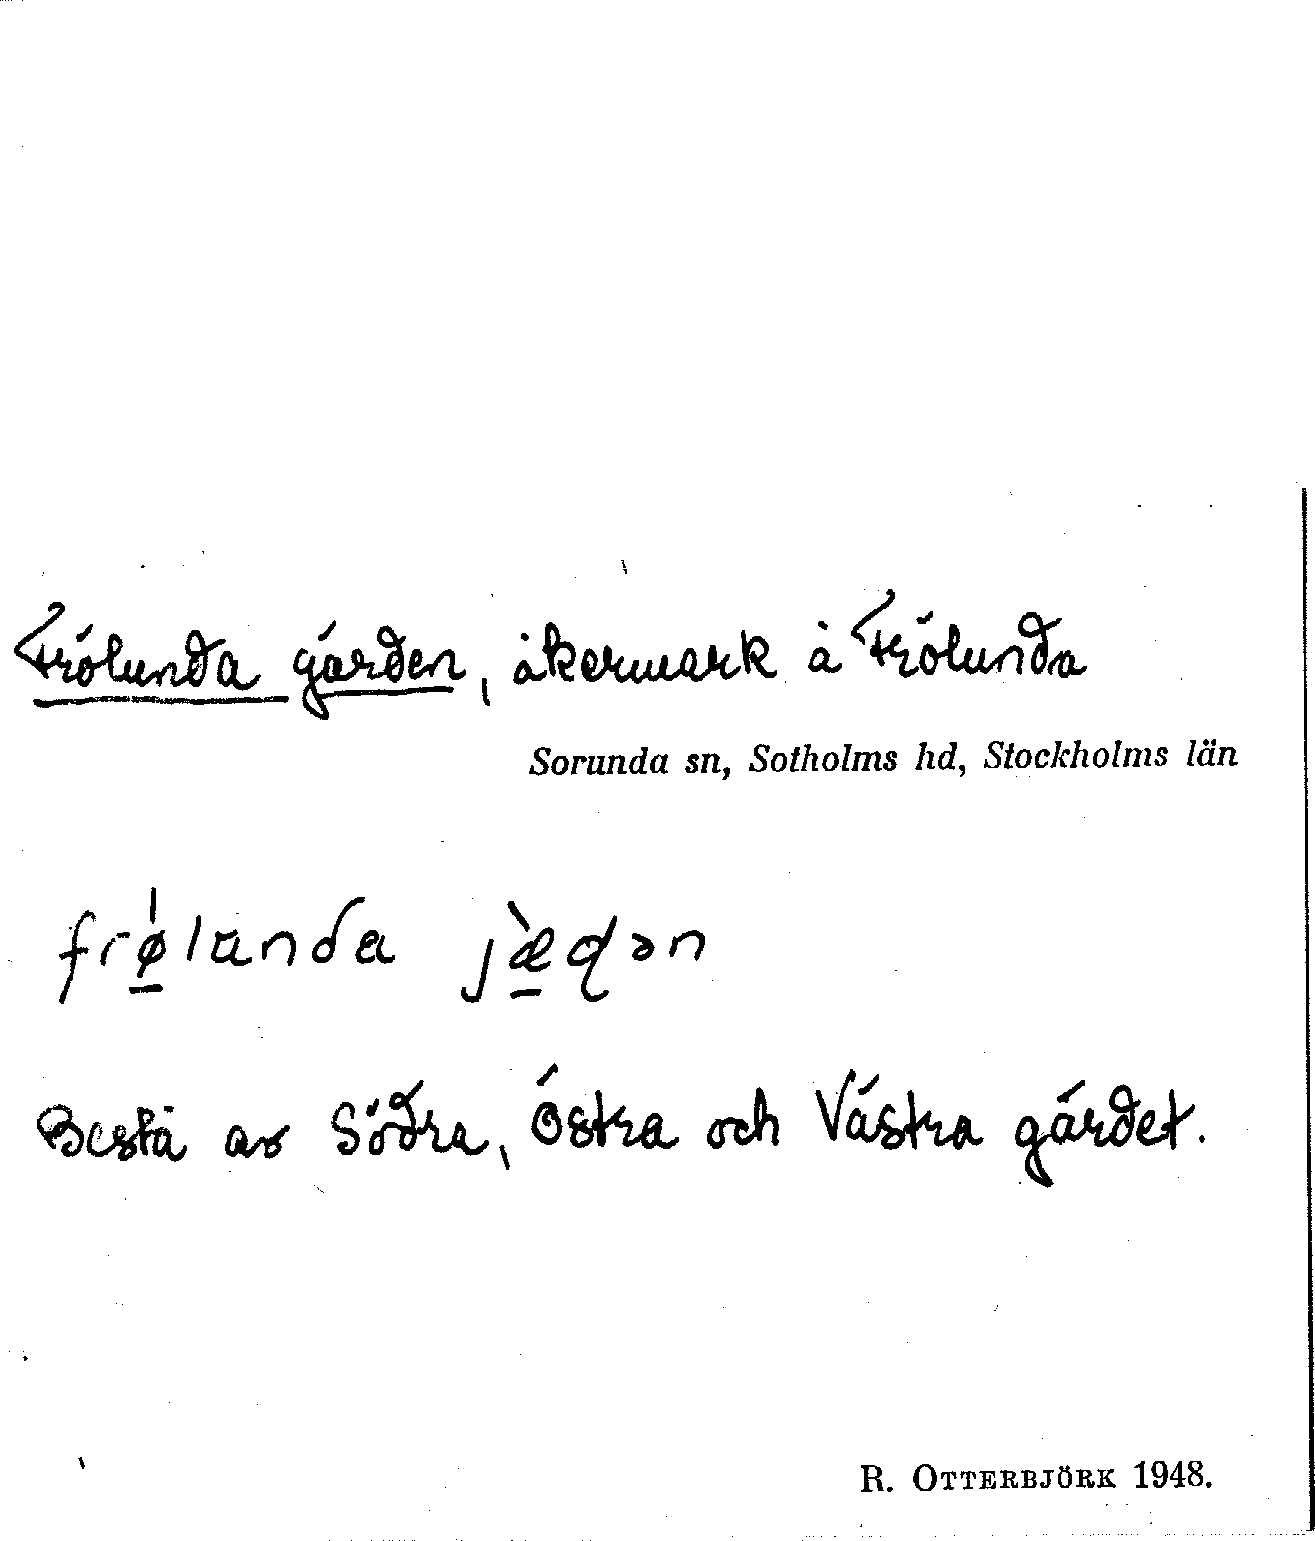 Frölunda gärden, åkermark å Frölunda
Sorunda sn, Sotholms hd, Stockholms län
frø̲lunda jæ̲ɖən
Bestå av Södra, Östra och Västra gärdet.
R. OTTERBJÖRK 1948.